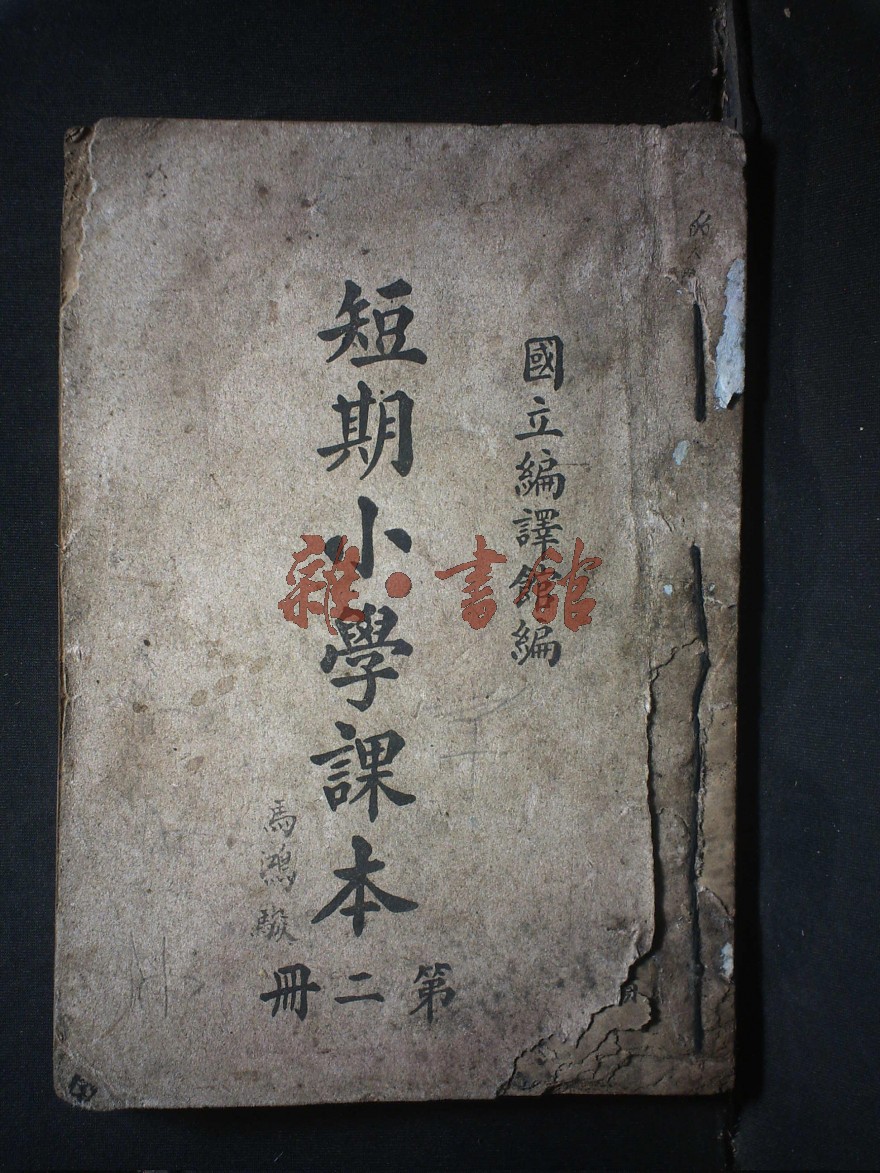 國立編譯館編
短期小學課本
第二冊
馬鴻駿
雜·書館